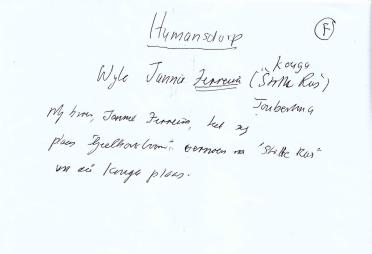 Humansdorp
F
Kouga
Wyle Jannie Ferreira ("Stille Rus")
Joubertina
My broer, Jannie Ferreira, het sy
plaas "Geelhoutboom" vernoem na "Stille Rus"
'n Kouga plaas.